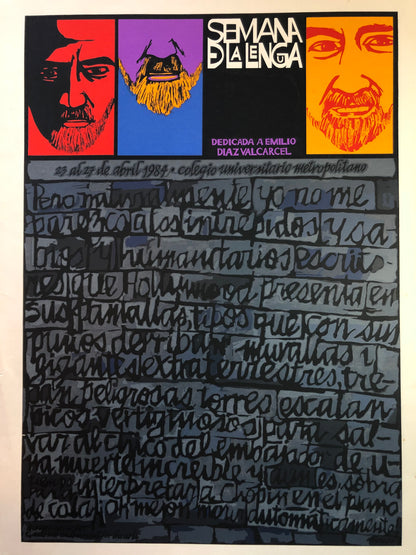 SEMANA
D LA LENGA
DEDICADA A EMILIO
DIAZ VALCARCEL
23 al 27 de abril 1984 • colegio universitario metropolitano
Pero naturalmente yo no me
parezco a los intrépidos y sa-
nos y humanitarios escrito-
res que Hollywood presenta en
sus pantallas, tipos que con sus
puños derriban murallas y
gigantes extraterrestres, tre-
pan peligrosas torres, escalan
picos vertiginosos para sal-
var al chico del embajador de u-
na muerte increíble y
interpretar a Chopin en el piano
de cola, oh mejor more automáticamente